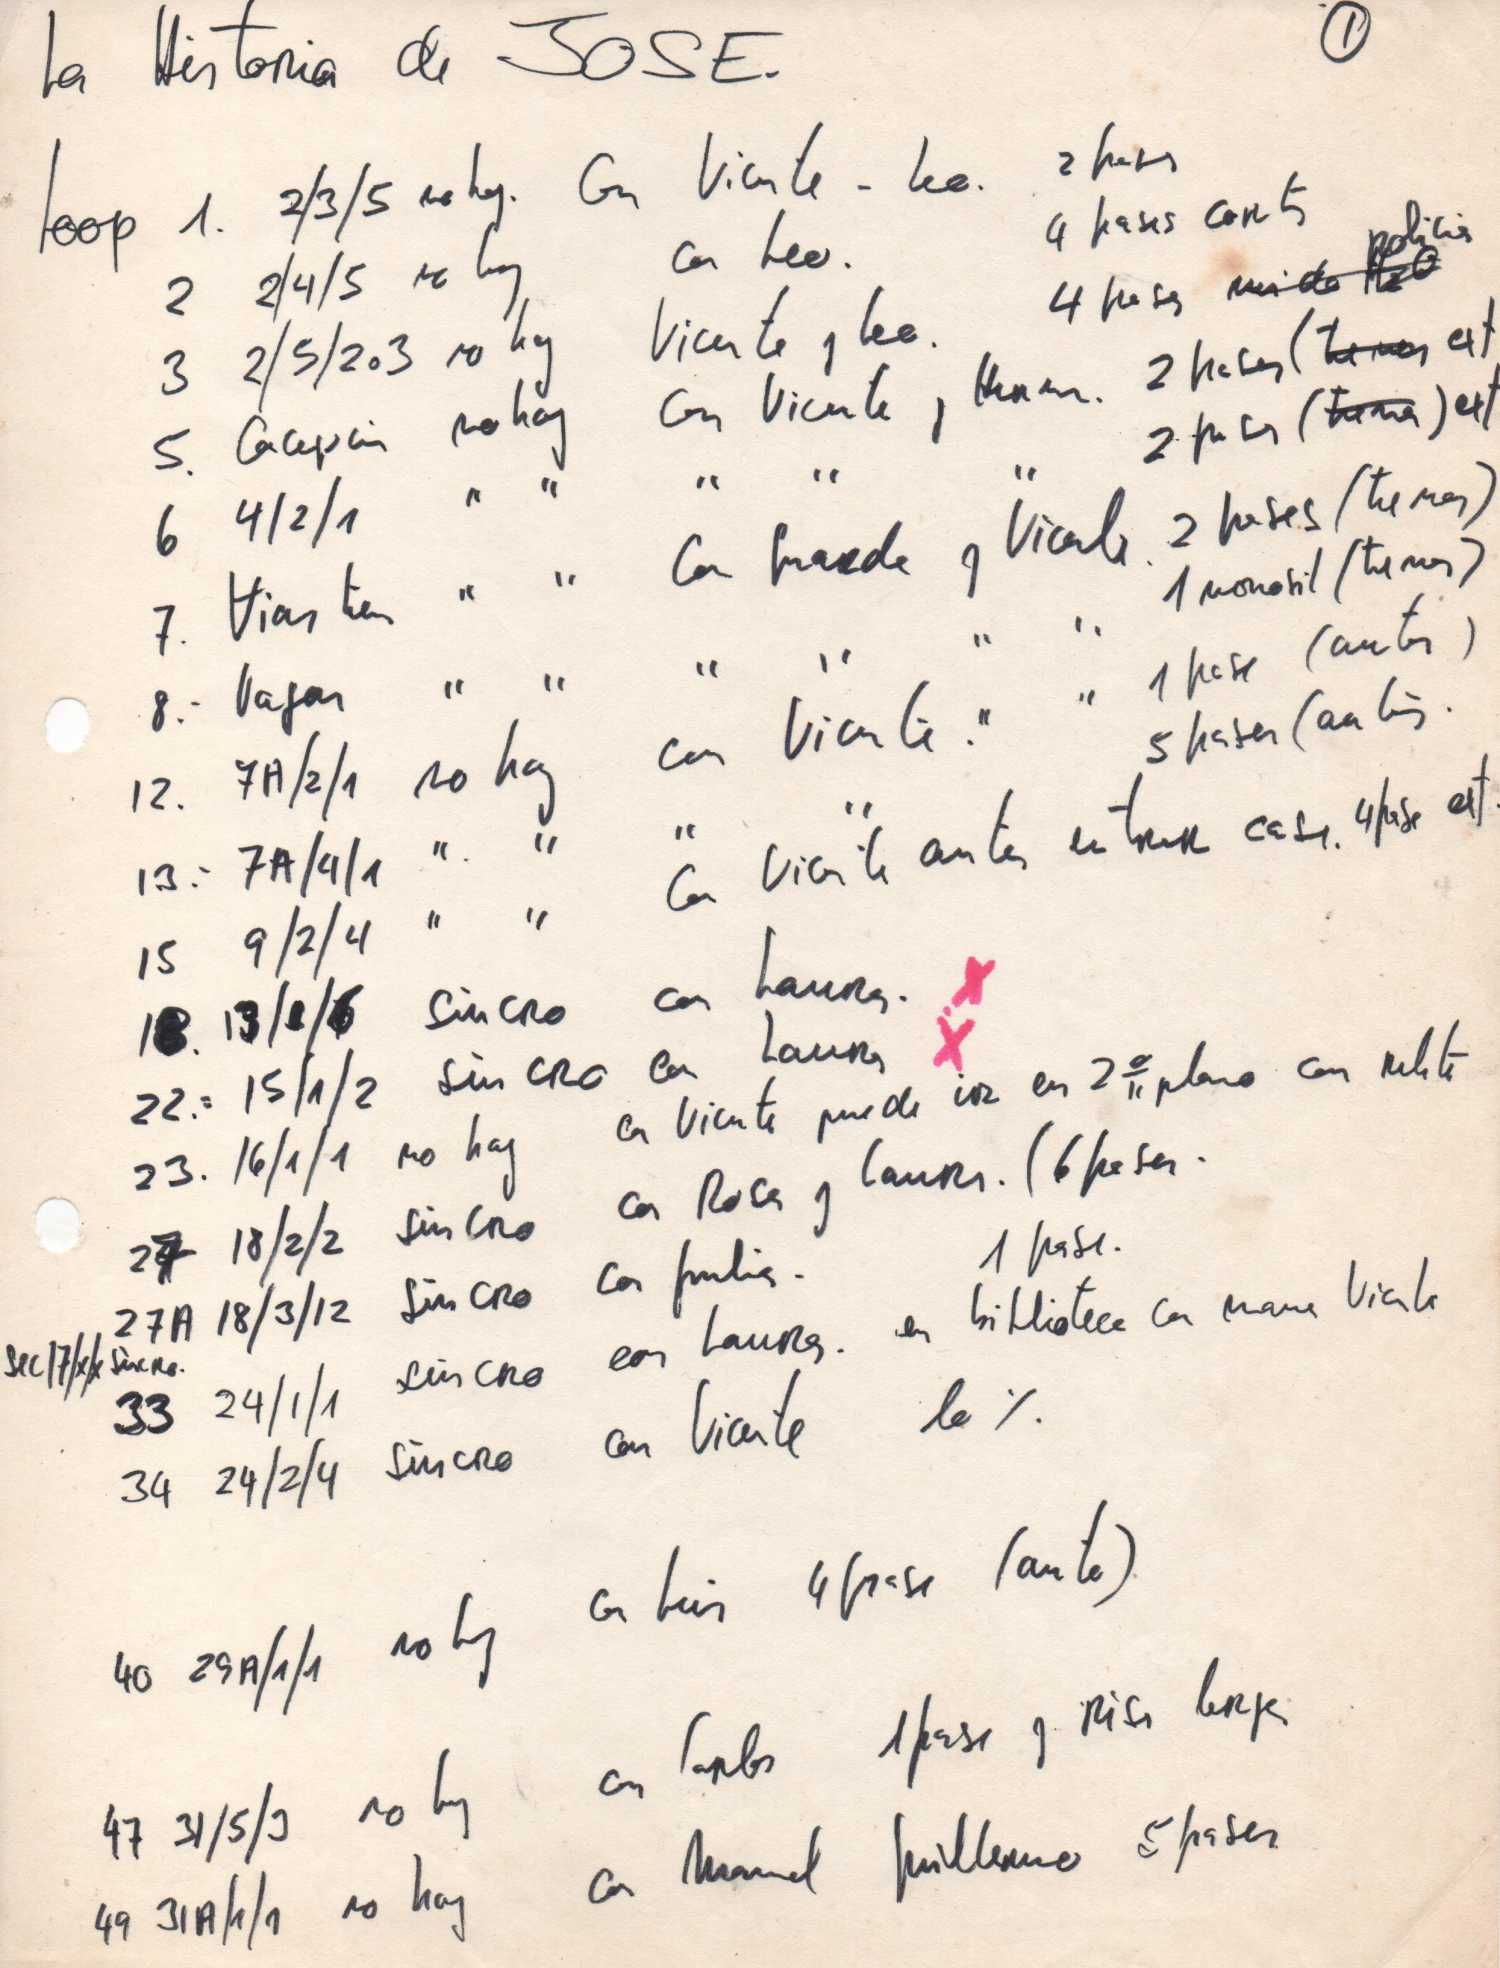 La Historia de JOSE. 1
Loop 1. 2/3/5 no hay. Con Vicente - Leo. 2 frases
2 2/4/5 no hay con Leo. 4 frases
3 2/5/2.3 no hay Vicente y Leo. 4 frases policia
5. no hay Con Vicente y 2 frases ( ext
6 4/2/1 " " " " " 2 frases ( ) ext
7. " " Con y Vicente. 2 frases
8.- " " " " " " 1 monosil
12. 7A/2/1 no hay con Vicente. " " 1 frase
13.- 7A/4/1 " " " " 5 frases
15 9/2/4 " " Con Vicente antes entrar casa. 4 frase ext.
18. sincro con Laura. X
22.- 15/1/2 sincro con Laura X
23. 16/1/1 no hay con Vicente puede ir en 2º plano con
27 18/2/2 sincro con Rosa y Laura. (6 frases.
27A 18/3/12 sincro con 1 frase.
sec 17/x/x sincro.
33 24/1/1 sincro con Laura. en biblioteca con Vicente
34 24/2/4 sincro con Vicente
40 29A/1/1 no hay con Luis 4 frase
47 31/5/3 no hay con Carlos 1 frase y risa larga
49 31A/1/1 no hay con Manuel Guillermo 5 frases